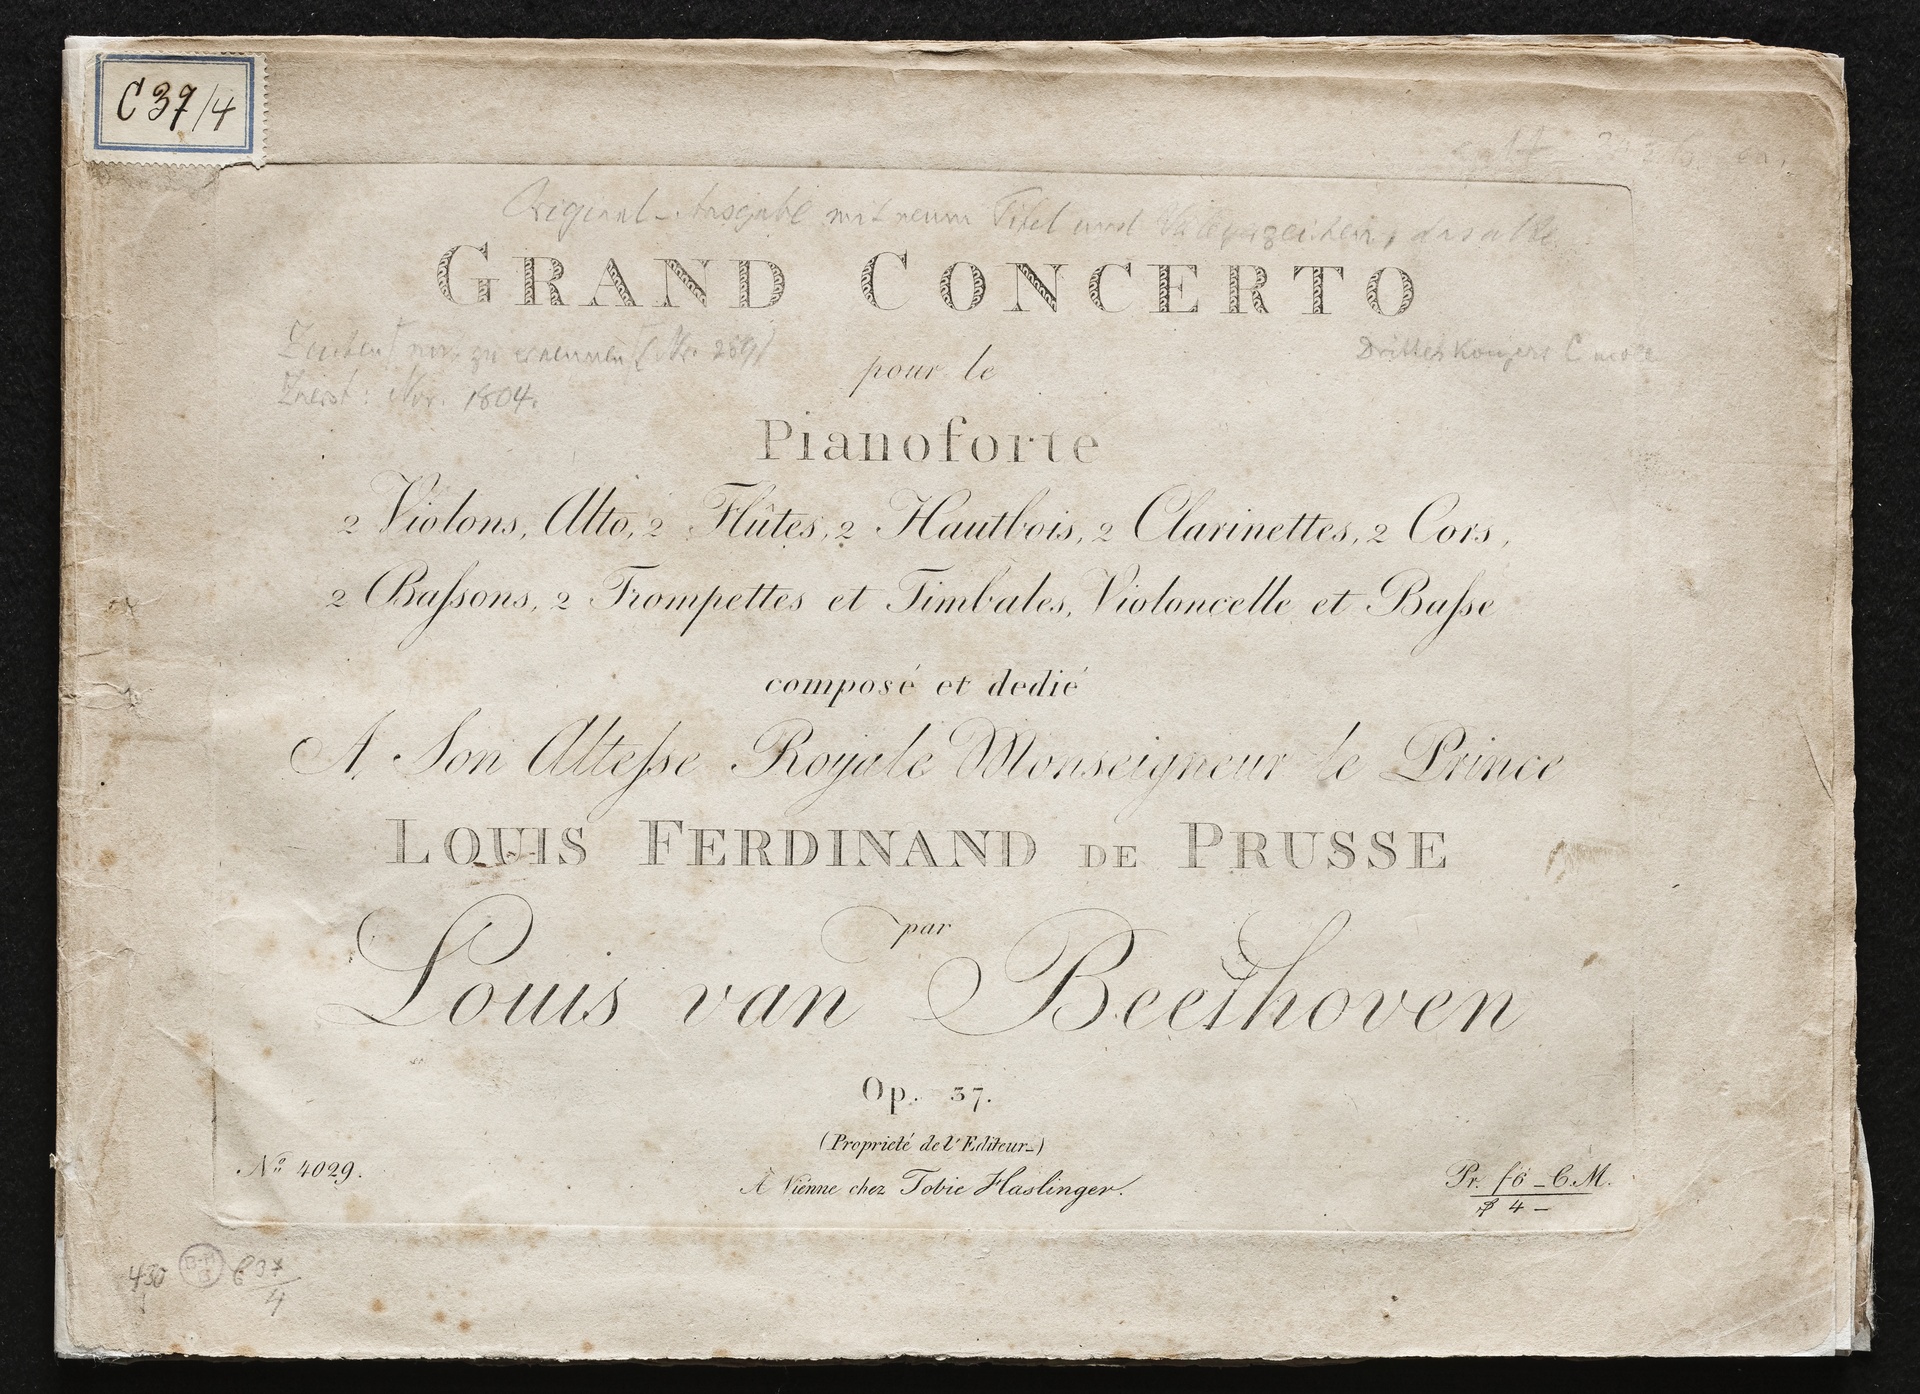 C 37/4
Original-Ausgabe mit neuem Titel und Verlagszeichen, das alte
GRAND CONCERTO
Zeichen nur zu erkennen (Nr. 289)
Drittes Konzert C moll
pour le
Zuerst: Nov. 1804.
Pianoforte
2 Violons, Alto, 2 Flûtes, 2 Hautbois, 2 Clarinettes, 2 Cors,
2 Baſsons, 2 Trompettes et Timbales, Violoncelle et Baſse
composé et dedié
A Son Alteſse Royale Monseigneur le Prince
LOUIS FERDINAND DE PRUSSE
par
Louis van Beethoven
Op. 37.
(Proprieté de l'Editeur.)
No. 4029.
À Vienne chez Tobie Haslinger.
Pr. f6 _ C.M.
4 –
430 C 37/4